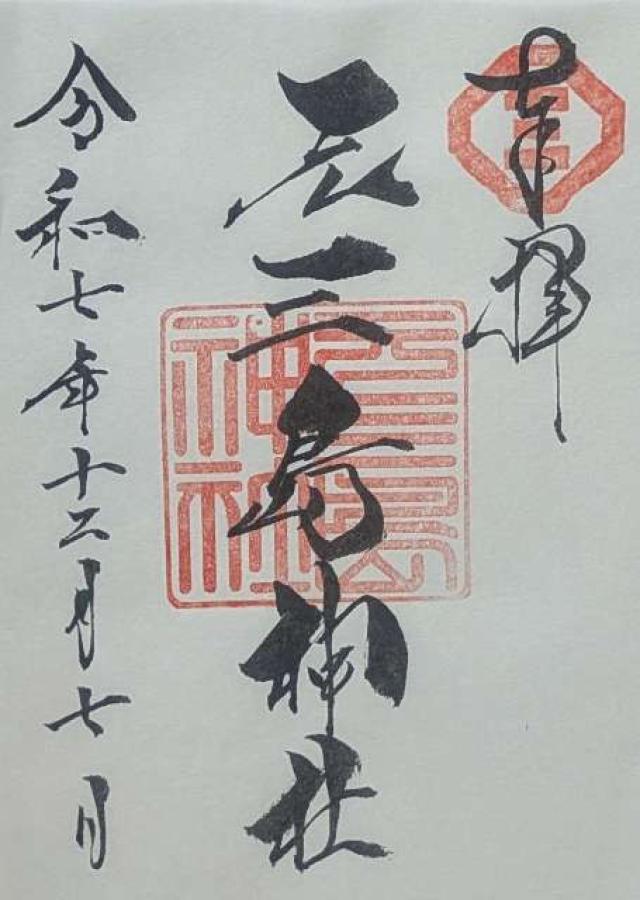 奉拝
三
元三島神社
元三島
神社
令和七年十二月七日